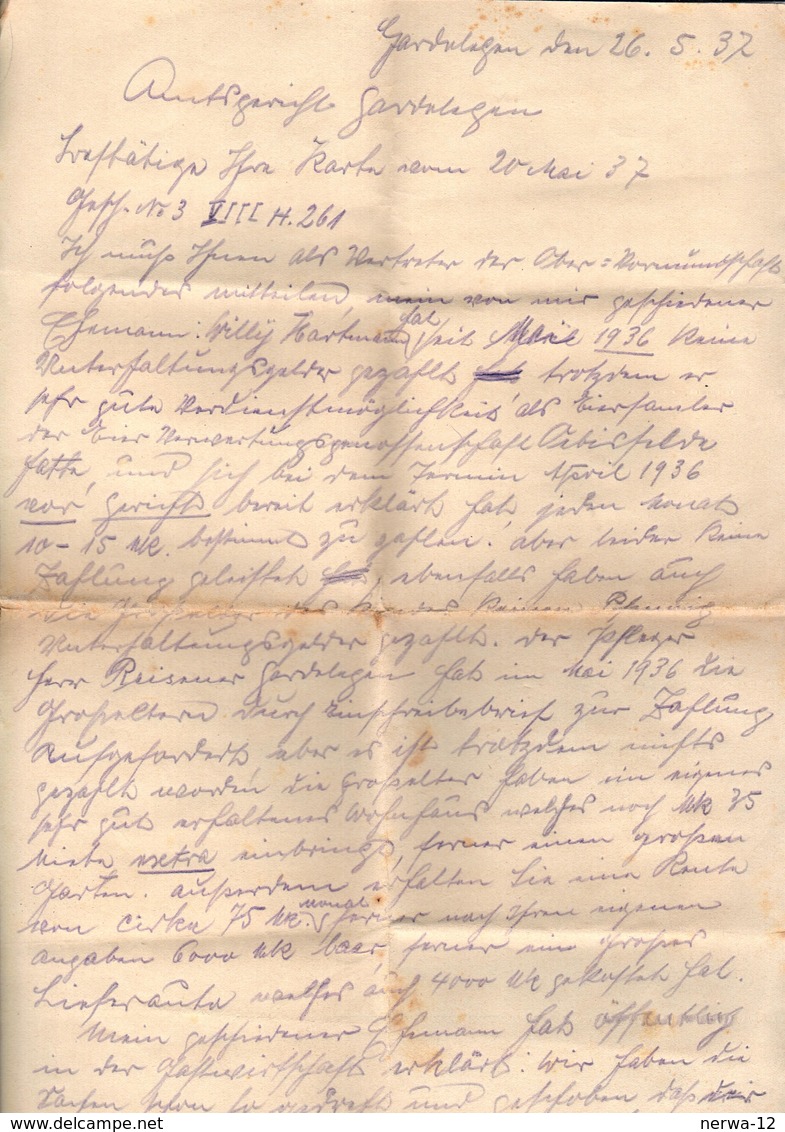 Gardelegen den 26. 5. 37
Amtsgericht Gardelegen
Bestätige Ihre Karte vom 20 Mai 37
Gesch. No 3 VIII H. 261
Ich muß Ihnen als Vertreter der Ober=Vormundschaft
folgendes mitteilen, mein von mir geschiedener
Ehemann: Willy Hartmann hat seit 1936 keine
Unterhaltungsgelder gezahlt trotzdem er
sehr gute Verdienstmöglichkeit als Eiersamler
der Eier Verwertungsgenossenschaft Oebisfelde
hatte, und sich bei dem Termin April 1936
vor gericht bereit erklärt hat jeden Monat
10-15 Mk. bestimmt zu zahlen. aber leider keine
Zahlung geleistet, ebenfalls haben auch
die Großeltern des Kindes keinen Pfennig
Unterhaltungsgelder gezahlt. der Pfleger
Herr Reisener Gardelegen hat im Mai 1936 die
Großeltern durch Einschreibebrief zur Zahlung
aufgefordert aber es ist trotzdem nichts
gezahlt worden die Großelter haben ein eigenes
sehr gut erhaltenes Wohnhaus welches noch Mk 35
Miete extra einbringt, ferner einen großen
Garten. außerdem erhalten Sie eine Rente
von cirka 75 Mk. monatl ferner nach Ihren eigenen
angaben 6000 Mk baar, ferner ein großes
Lieferauto welches auch 4000 Mk gekostet hat.
Mein geschiedener Ehemann hat öffentlich
in der Gastwirtschaft erklärt: Wir haben die
Sachen schon so gedreht und geschoben daß wir
delcampe.net
nerwa-12